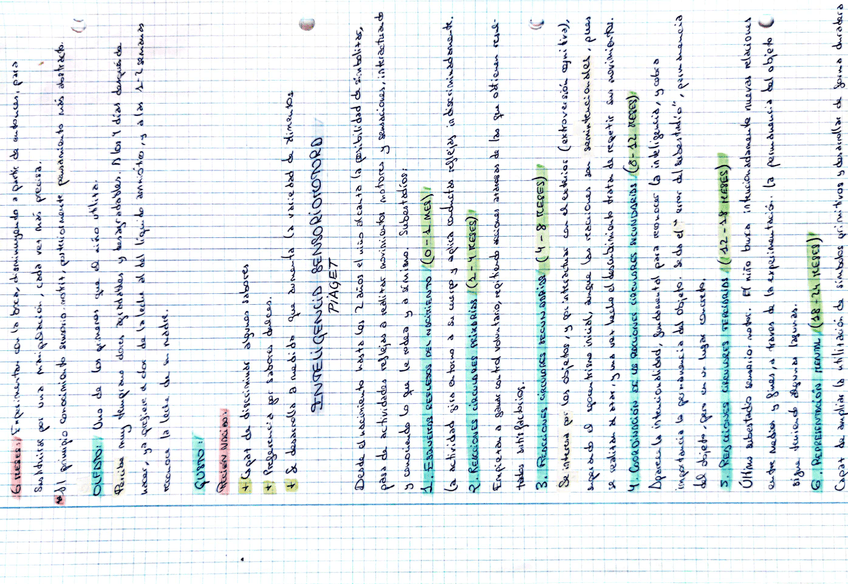 6 MESES: Experimentan con la boca, disminuyendo a partir de entonces, para
sustituirse por una manipulación, cada vez más precisa.
* Al principio conocimiento sensorio-motriz, posteriormente pensamiento más abstracto.
OLFATO: Uno de los primeros que el niño utiliza.
Percibe muy temprano olores agradables y desagradables. A los 4 días después de
nacer, ya prefiere el olor de la leche al del líquido amniótico, y a las 1-2 semanas
reconoce la leche de su madre.
GUSTO:
RECIÉN NACIDO:
+ Capaz de discriminar algunos sabores
+ Preferencia por sabores dulces.
+ Se desarrolla a medida que aumenta la variedad de alimentos
INTELIGENCIA SENSORIOMOTORA
PIAGET
Desde el nacimiento hasta los 2 años el niño alcanza la posibilidad de simbolizar,
pasa de actividades reflejas a realizar movimientos motores y sensaciones, interactuando
y conociendo lo que le rodea y a sí mismo. Subestadios:
1. ESQUEMAS REFLEJOS DEL NACIMIENTO (0-1 MES)
La actividad gira entorno a su cuerpo y aplica conductas reflejas indiscriminadamente.
2. REACCIONES CIRCULARES PRIMARIAS (1-4 MESES)
Empiezan a ganar control voluntario, repitiendo acciones a través de las que obtienen resul-
tados satisfactorios.
3. REACCIONES CIRCULARES SECUNDARIAS (4-8 MESES)
Se interesa por los objetos, y por interactuar con el exterior (extroversión cognitiva),
superando el egocentrismo inicial, aunque las reacciones son semiintencionales, pues
se realizan al azar y una vez hecho el descubrimiento tratan de repetir sus movimientos.
4. COORDINACIÓN DE LAS REACCIONES CIRCULARES SECUNDARIAS (8-12 MESES)
Aparece la intencionalidad, fundamental para reconocer la inteligencia, y cobra
importancia la permanencia del objeto. Se da el "error del subestadio", permanencia
del objeto, pero en un lugar concreto.
5. REACCIONES CIRCULARES TERCIARIAS (12-18 MESES)
Último subestadio sensorio-motor. El niño busca intencionadamente nuevas relaciones
entre medios y fines, a través de la experimentación. La permanencia del objeto
sigue teniendo algunas lagunas.
6. REPRESENTACIÓN MENTAL (18-24 MESES)
Capaz de ampliar la utilización de símbolos primitivos y desarrollar de forma duradera